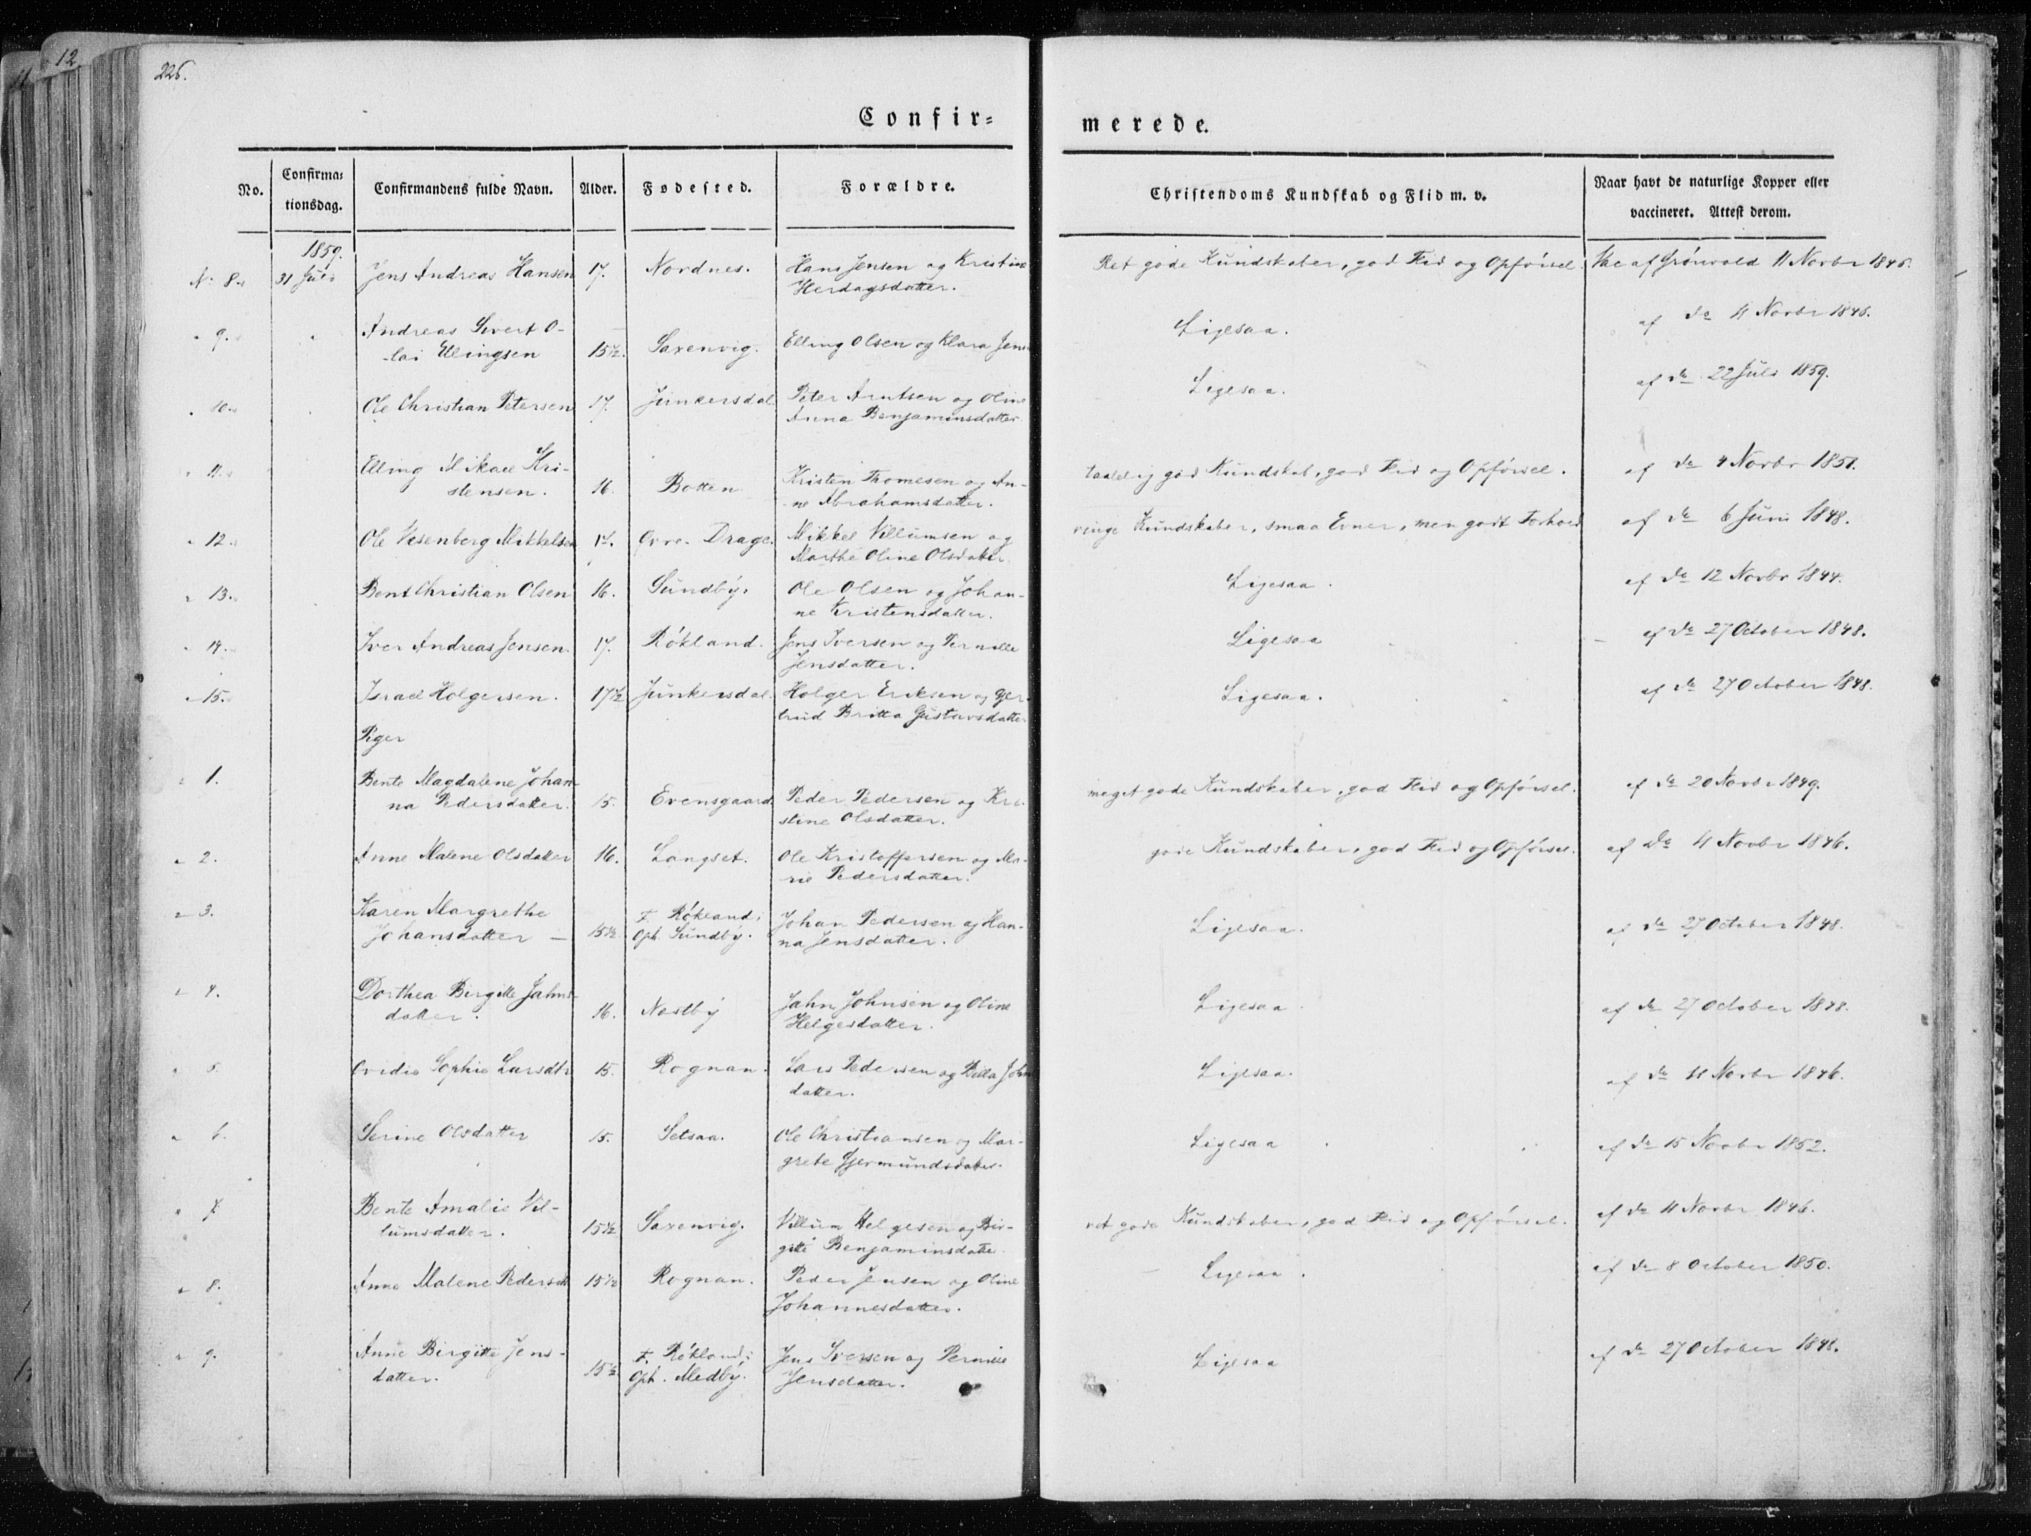 12
226.
Confir=
merede.
No.
Confirma=
tionsdag.
Confirmandens fulde Navn.
Alder.
Fødested.
Forældre.
Christendoms Kundskab og Flid m. v.
Naar havt de naturlige Kopper eller
vaccineret. Attest derom.
1859.
N. 8. 31 Juli Jens Andreas Hansen 17. Nordnes. Hans Jensen og Kristine
Herdagsdatter. Ret gode Kundskaber, god Flid og Opførsel. Vac af Grønvold 11 Novbr 1846.
" 9. Andreas Sivert O-
lai Ellingsen 15½. Saxenvig. Elling Olsen og Klara Jens Ligesaa. af do 11 Novbr 1846.
" 10. Ole Christian Petersen 17. Junkersdal Peter Arntsen og Oline
Anna Benjaminsdatter Ligesaa. af do 22 Juli 1859.
" 11. Elling Mikael Kri-
stensen. 16. Botten Kristen Thomesen og An-
ne Abrahamsdatter. taalelig god Kundskab, god Flid og Opførsel. af do 4 Novbr 1851.
" 12. Ole Vesenberg Mikkelsen 17. Øvre Drage. Mikkel Villumsen og
Marthe Oline Olsdatter. ringe Kundskaber, smaa Evner, men godt Forhold af do 6 Juni 1848.
" 13. Bent Christian Olsen 16. Sundby. Ole Olsen og Johan-
ne Kristensdatter. Ligesaa. af do 12 Novbr 1844.
" 14. Iver Andreas Jensen 17. Røkland. Jens Iversen og Pernille
Jensdatter. Ligesaa af do 27 October 1848.
" 15. Israel Holgersen. 17½ Junkersdal. Holger Eriksen og Ger-
trud Britta Gustavsdatter Ligesaa. af do 27 October 1848.
Piger
" 1. Bente Magdalene Johan-
na Pedersdatter. 15. Evensgaard. Peder Pedersen og Kri-
stine Olsdatter. meget gode Kundskaber, god Flid og Opførsel. af do 20 Novbr 1849.
" 2. Anne Malene Olsdatter 16. Langset. Ole Kristoffersen og Ma-
rie Pedersdatter. gode Kundskaber, god Flid og Opførsel. af do 11 Novbr 1846.
" 3. Karen Margrethe
Johansdatter — 15½ F. Røkland;
Oph. Sundby. Johan Pedersen og Han-
na Jensdatter. Ligesaa. af do 27 October 1848.
" 4. Dorthea Birgitte Jahns-
datter. 16. Nestby Jahn Johnsen og Oline
Helgesdatter. Ligesaa. af do 27 October 1848.
" 5. Ovidie Sophie Larsdtr 15. Rognan. Lars Pedersen og Beda Johns
datter. Ligesaa. af do 11 Novbr 1846.
" 6. Serine Olsdatter 15. Setsaa. Ole Christiansen og Mar-
grete Gjermundsdatter. Ligesaa af do 15 Novbr 1852.
" 7. Bente Amalie Vil-
lumsdatter. 15½ Saxenvig. Villum Helgesen og Bir-
gitte Benjaminsdatter. ret gode Kundskaber, god Flid og Opførsel. af do 11 Novbr 1846.
" 8. Anne Malene Pedersdtr 15½ Rognan. Peder Jensen og Oline
Johannesdatter. Ligesaa. af do 8 October 1850.
" 9. Anne Birgitte Jens-
datter. 15½ F. Røkland;
Oph. Medby. Jens Iversen og Pernille
Jensdatter. Ligesaa af do 27 October 1848.